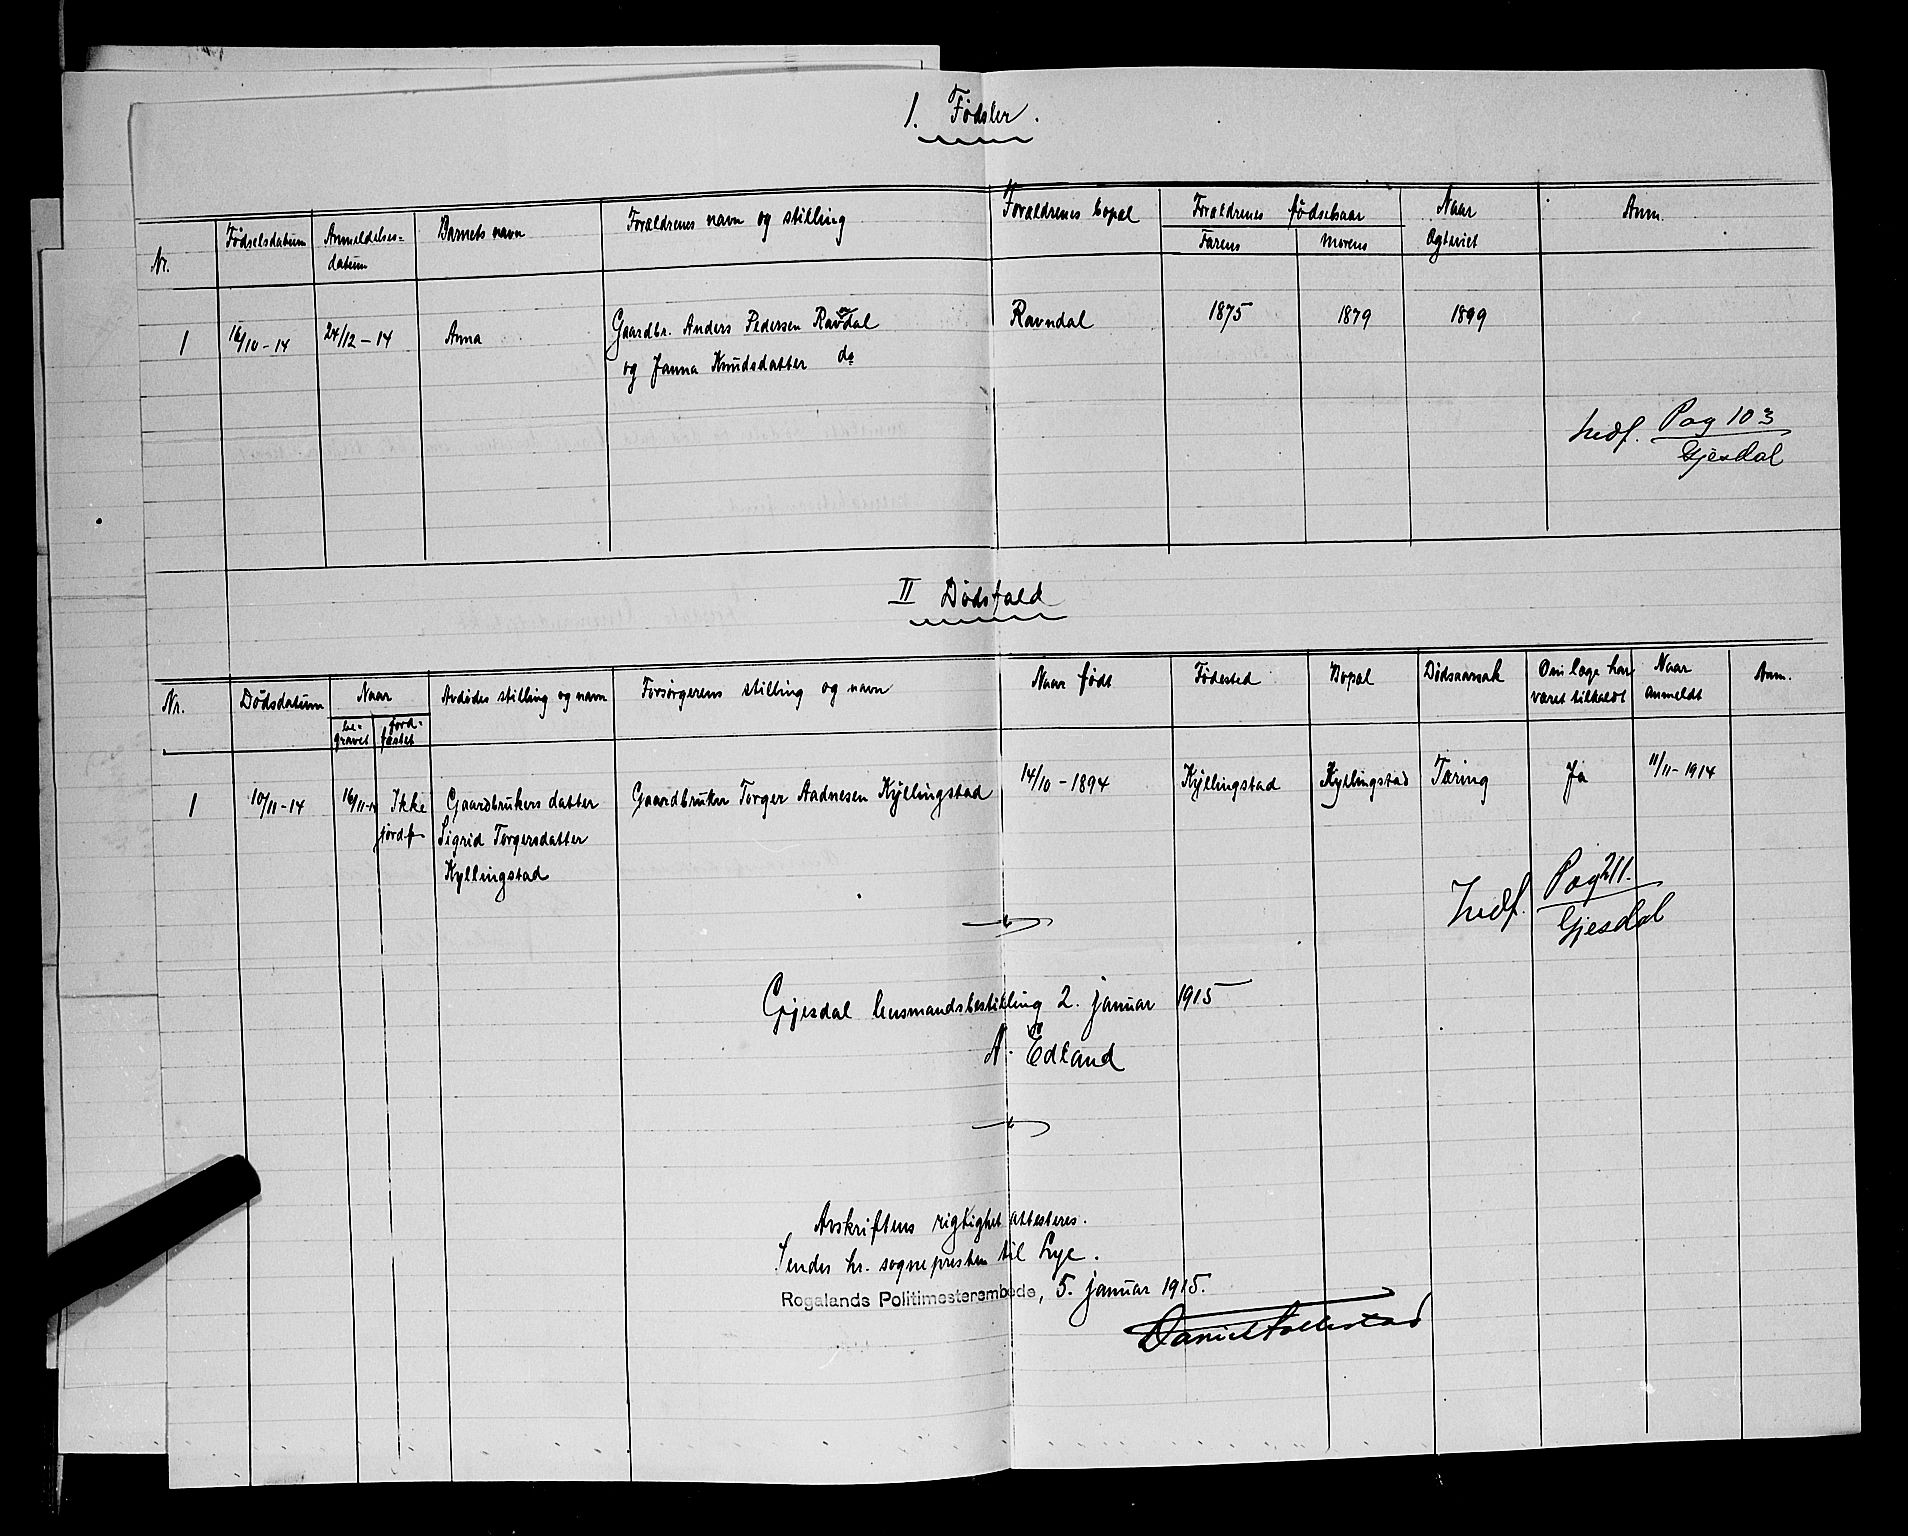 1. Fødsler.
Nr.
Fødselsdatum
Anmeldelses-
datum
Barnets navn
Forældrenes navn og stilling
Forældrenes bopæl
Forældrenes fødselsaar
Farens
Morens
Naar
Egteviet
Anm.
1
16/10 - 14
24/12 - 14
Anna
Gaardbr. Anders Pedersen Ravndal
og Janna Knudsdatter do
Ravndal
1875
1879
1899
Indf. Pag 103
Gjesdal
II Dødsfald
Nr.
Dødsdatum
Naar
be-
gravet
jord-
fæstet
Avdødes stilling og navn
Forsørgerens stilling og navn
Naar født
Fødested
Bopæl
Dødsaarsak
Om læge har
været tilkaldt
Naar
anmeldt
Anm.
1
10/11 - 14
16/11 - 14
Ikke
jordf
Gaardbrukers datter
Sigrid Torgersdatter
Kyllingstad
Gaardbruker Torger Aadnesen Kyllingstad
14/10 - 1894
Kyllingstad
Kyllingstad
Tæring
Ja
11/11 - 1914
Indf. Pag 211.
Gjesdal
Gjesdal lensmandsbestilling 2. januar 1915
A. Edland
Avskriftens rigtighet attesteres.
Sendes hr. sognepresten til Lye.
Rogalands Politimesterembede, 5. januar 1915.